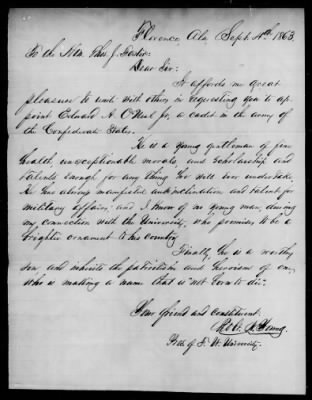 Florence, Ala, Sept. 4th, 1863
To the Hon. Thos. J. Foster:
Dear Sir:
It affords me great
pleasure to unite with others in requesting you to ap-
point Edward A. O'Neal Jr, a cadet in the army of
the Confederate States.
He is a young gentleman of fine
health, unexceptionable morals, and scholarship and
talents enough for any thing he will ever undertake.
He has always manifested an inclination and talent for
military affairs, and I know of no young man, during
my connection with the University, who promises to be a
brighter ornament to his country
Finally, he is a worthy
son, and inherits the patriotism and heroism of one,
who is making a name that is not born to die.
Your friend and constituent.
Ro. A. Young,
Pres. of F. W. University.